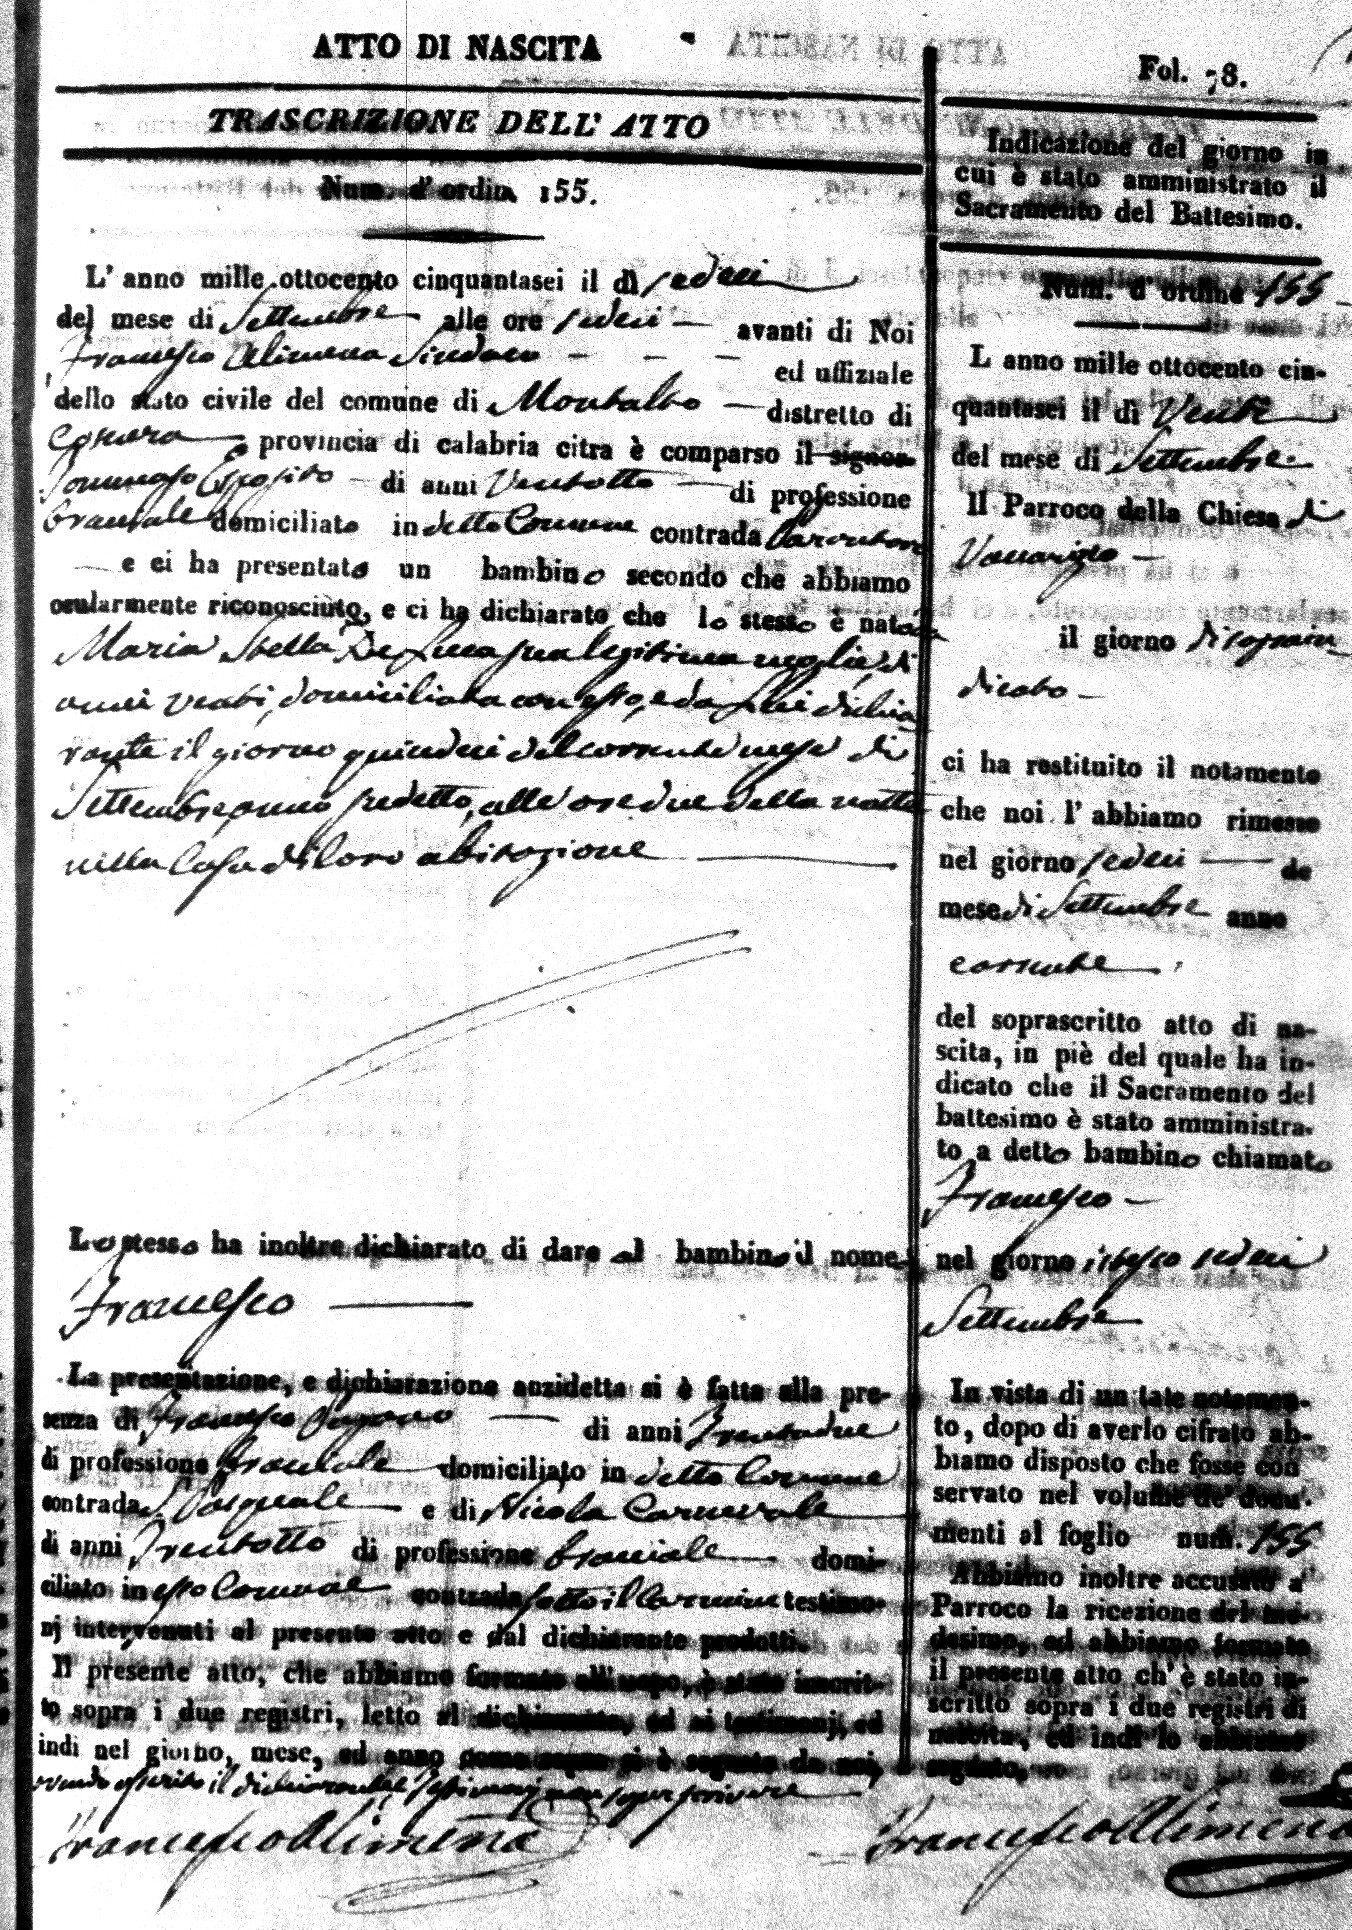 ATTO DI NASCITA
TRASCRIZIONE DELL' ATTO
Num. d' ordin. 155.
L' anno mille ottocento cinquantasei il dì sedeci
del mese di Settembre alle ore sedeci avanti di Noi
Francesco Alimena Sindaco
ed uffiziale
dello stato civile del comune di Montalto distretto di
Cosenza provincia di calabria citra è comparso il signor
Tommaso Esposito di anni Ventotto di professione
bracciale domiciliato in detto Comune contrada
e ci ha presentato un bambino secondo che abbiamo
ocularmente riconosciuto, e ci ha dichiarato che lo stesso è nato da
Maria Stella De Luca sua legitima moglie, di
anni venti, domiciliata con esso, e da esso lui dichia
rante il giorno quindeci del corrente mese di
Settembre, anno predetto, alle ore due della notte
nella Casa di loro abitazione
Lo stesso ha inoltre dichiarato di dare al bambino il nome
Francesco
La presentazione, e dichiarazione anzidetta si è fatta alla pre-
senza di Francesco di anni Trentadue
di professione bracciale domiciliato in detto Comune
contrada S. Pasquale e di Nicola Carnevale
di anni Trentotto di professione bracciale domi-
ciliato in esso Comune contrada sotto il Carmine testimo-
nj intervenuti al presente atto e dal dichiarante prodotti.
Il presente atto, che abbiamo formato all' uopo, è stato inscrit-
to sopra i due registri, letto al dichiarante, ed ai testimonj, ed
indi nel giorno, mese, ed anno come sopra si è segnato da noi,
avendo asserito il dichiarante, e testimonj non saper scrivere
Francesco Alimena
Fol. 78.
Indicazione del giorno in
cui è stato amministrato il
Sacramento del Battesimo.
Num. d' ordine 155
L anno mille ottocento cin-
quantasei il di Venti
del mese di Settembre
Il Parroco della Chiesa di
Vaccarizzo
il giorno
ci ha restituito il notamento
che noi l' abbiamo rimesso
nel giorno sedeci de
mese di Settembre anno
corrente
del soprascritto atto di na-
scita, in piè del quale ha in-
dicato che il Sacramento del
battesimo è stato amministra-
to a detto bambino chiamato
Francesco
nel giorno istesso sedeci
Settembre
In vista di un tale notamen-
to, dopo di averlo cifrato ab-
biamo disposto che fosse con
servato nel volume de' docu-
menti al foglio num. 155
Abbiamo inoltre accusato a
Parroco la ricezione del me-
desimo, ed abbiamo formato
il presente atto ch' è stato in-
scritto sopra i due registri di
nascita, ed indi lo abbiamo
segnato.
Francesco Alimena